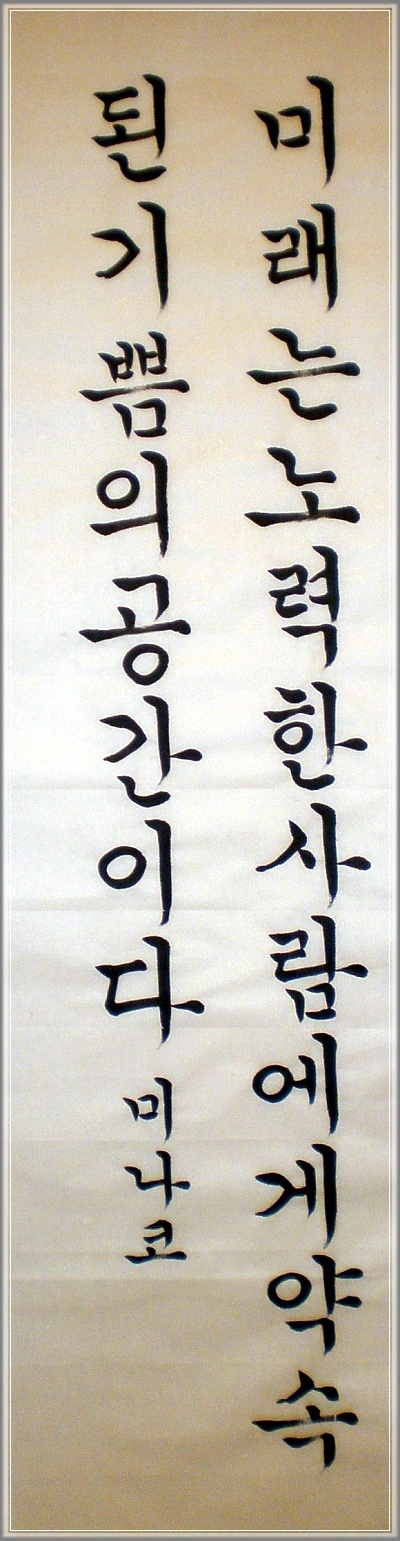 미래는노력한사람에게약속
된기쁨의공간이다
미나코